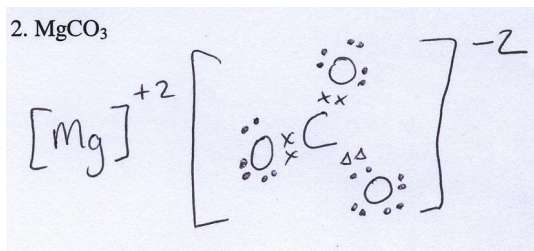 2. MgCO₃
[Mg]⁺² [ O C O O ]⁻²